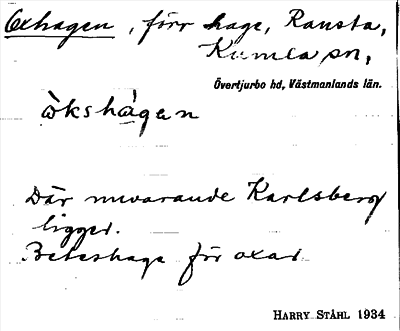 Oxhagen, förr hage, Ransta,
Kumla sn,
Övertjurbo hd, Västmanlands län.
òkshàgen
Där nuvarande Karlsberg
ligger.
Beteshage för oxar.
HARRY STÅHL 1934